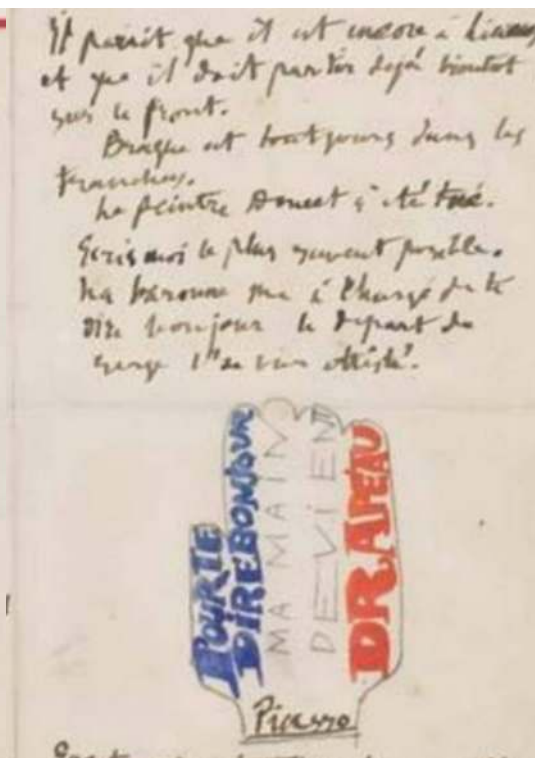 Il parait que il est encore à
et que il doit partir dejà bientot
sur le front.
Braque est toutjours dans les
tranchées.
Le peintre Doucet a été tué.
Ecris moi le plus souvent posible.
La baronne ma a chargé de te
dire bonjour le depart de
Serge l'a
POUR TE
DIRE BONJOUR
MA MAIM
DEVIEN
DRAPEAU
Picasso